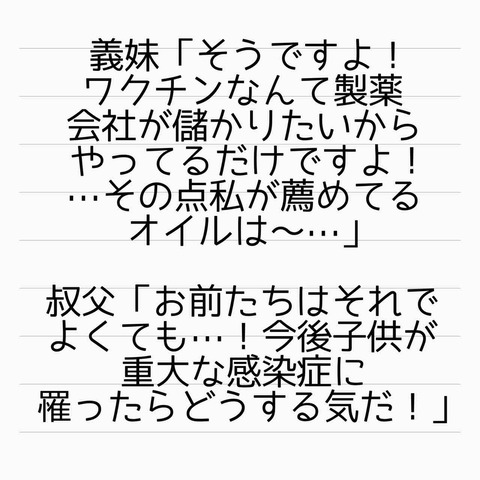 義妹「そうですよ！
ワクチンなんて製薬
会社が儲かりたいから
やってるだけですよ！
…その点私が薦めてる
オイルは〜…」
叔父「お前たちはそれで
よくても…！今後子供が
重大な感染症に
罹ったらどうする気だ！」